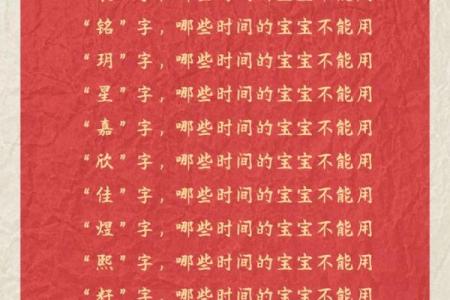 ”字，哪些时间的宝宝不能用
“铭”字，哪些时间的宝宝不能用
“玥”字，哪些时间的宝宝不能用
“星”字，哪些时间的宝宝不能用
“嘉”字，哪些时间的宝宝不能用
“欣”字，哪些时间的宝宝不能用
“佳”字，哪些时间的宝宝不能用
“煜”字，哪些时间的宝宝不能用
“熙”字，哪些时间的宝宝不能用
“籽”字，哪些时间的宝宝不能用